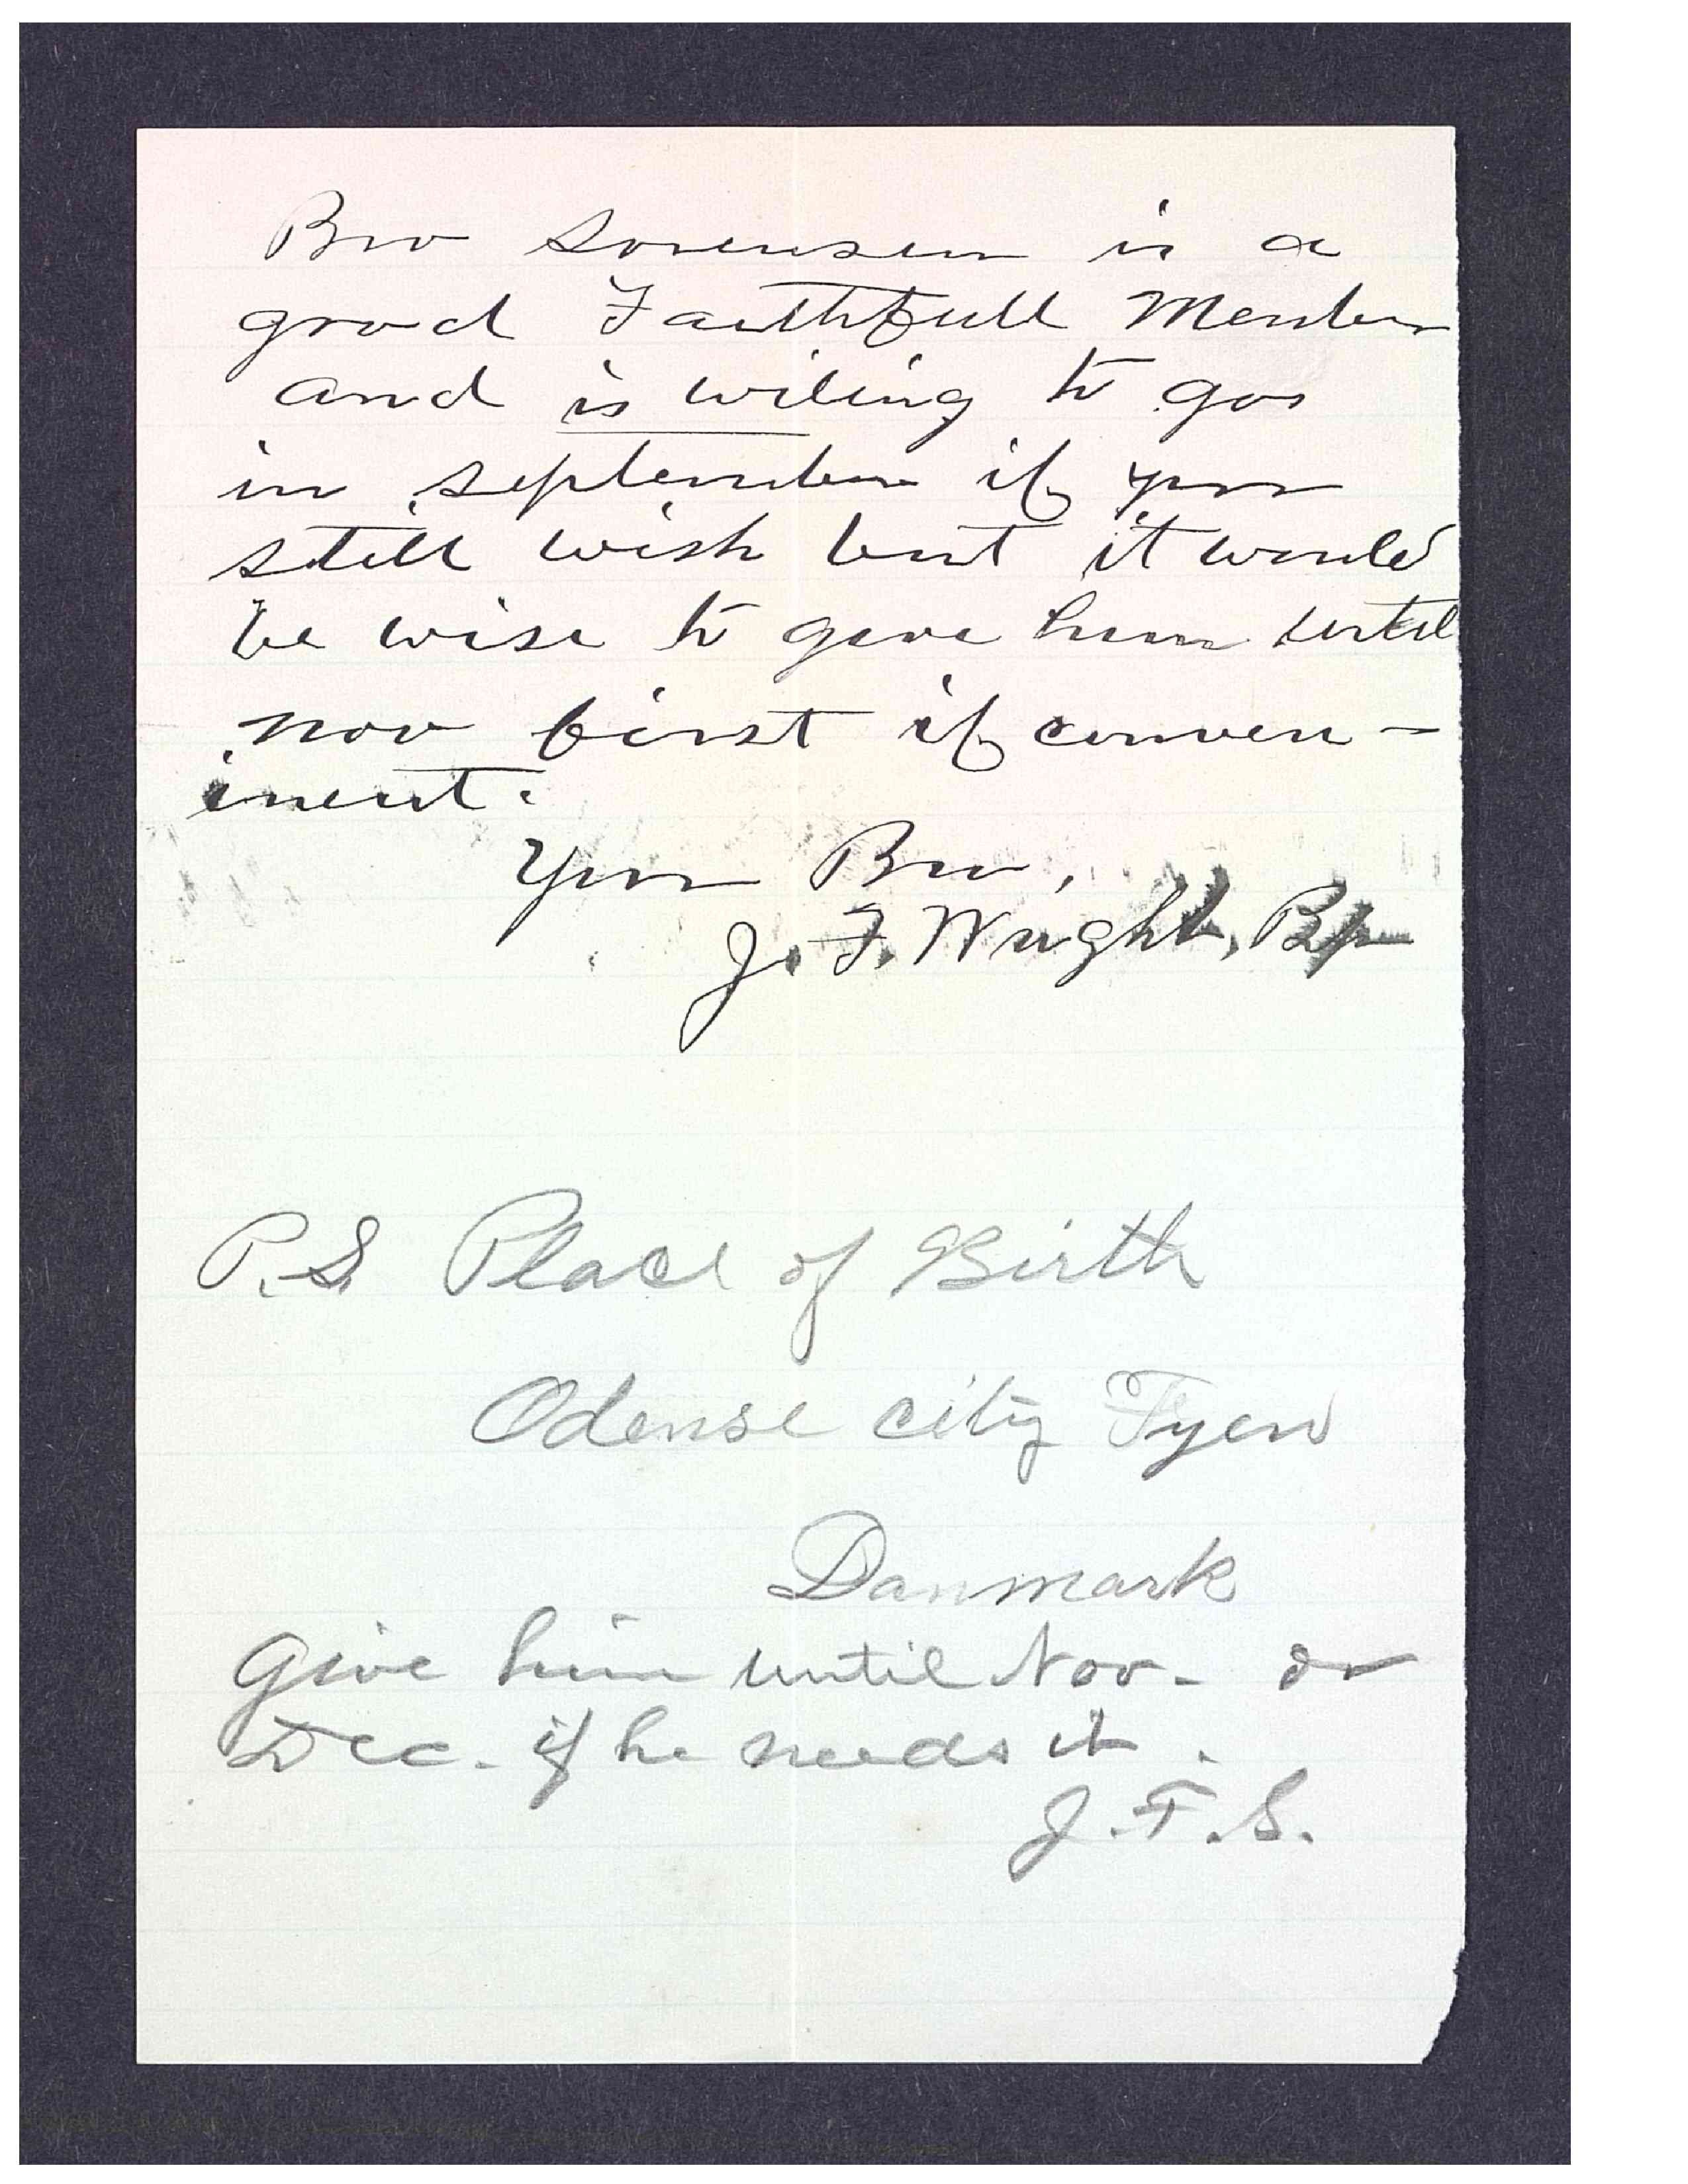 Bro Sorensen is a
good Faithfull Member
and is wiling to go
in september if you
still wish but it would
be wise to give him until
nov first if conven-
inent.
Your Bro,
J. F. Wright, Bp
P.S. Place of Birth
Odense city Fyen
Danmark
Give him until Nov. or
Dec. if he needs it.
J.F.S.